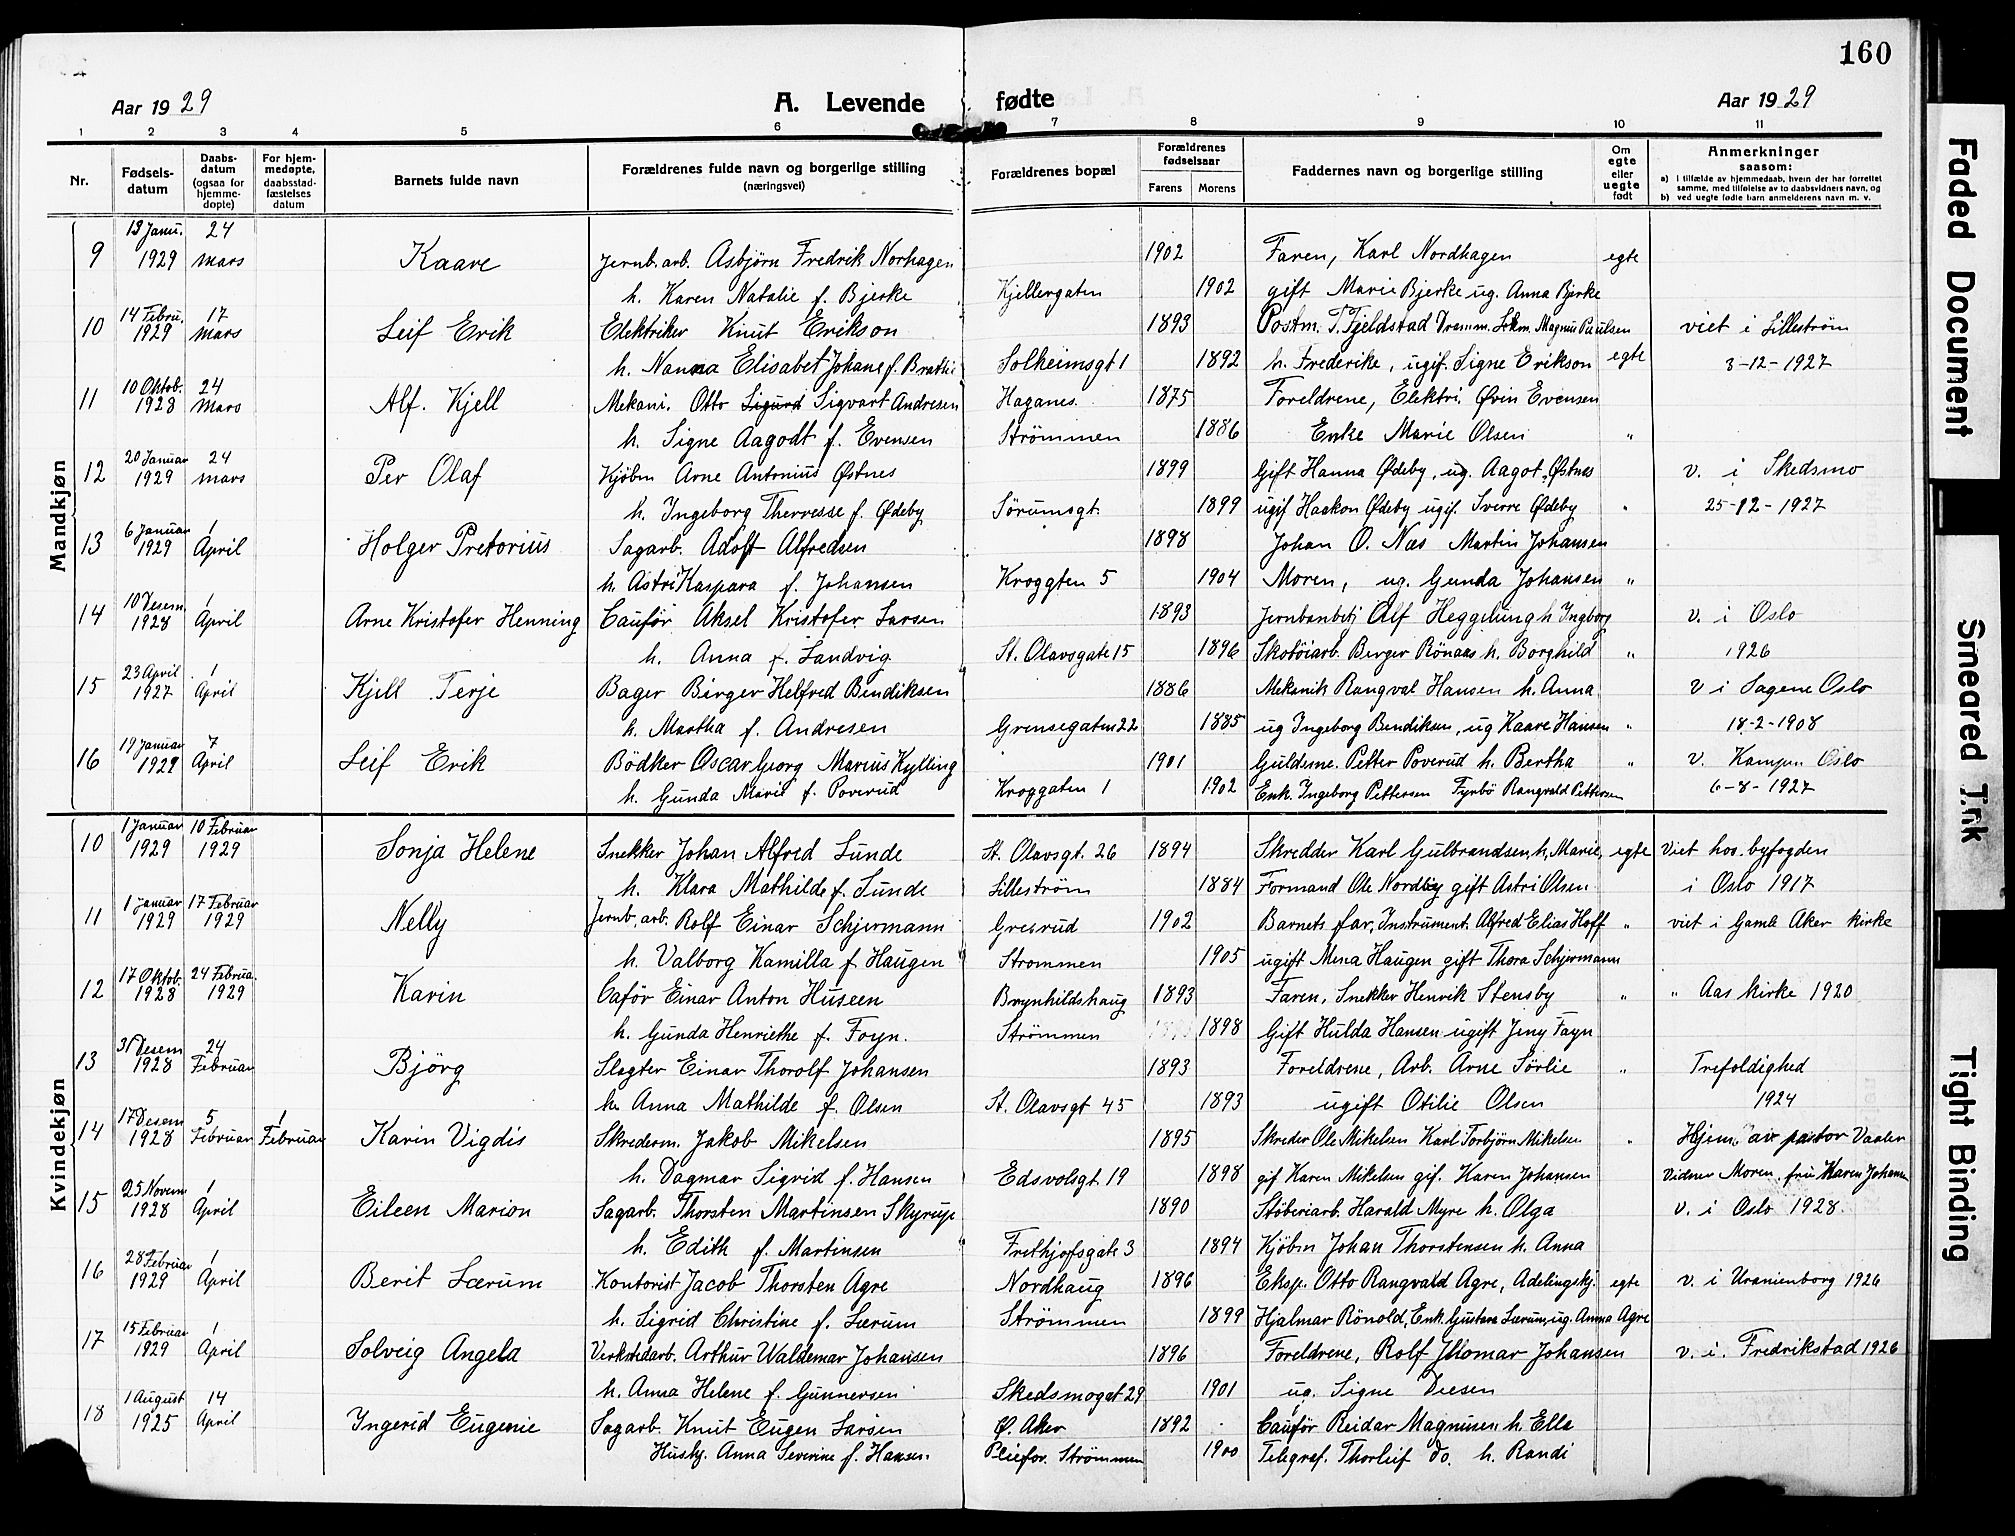 160
Aar 1929 A. Levende fødte Aar 1929
1 2 3 4 5 6 7 8 9 10 11
Nr. Fødsels-datum Daabs-datum (ogsaa for hjemme-døpte) For hjem-medøpte, daabsstad-fæstelses datum Barnets fulde navn Forældrenes fulde navn og borgerlige stilling (næringsvei) Forældrenes bopæl Forældrenes fødselsaar Farens Morens Faddernes navn og borgerlige stilling Om egte eller uegte født Anmerkninger saasom:
a) i tilfælde av hjemmedaab, hvem der har forrettet samme, med tilføielse av to daabsvidners navn, og
b) ved uegte fødte barn anmelderens navn m. v.
Mandkjøn
9 13 Janu. 1929 24 mars Kaare Jernb. arb. Asbjørn Fredrik Norhagen 1902 Faren, Karl Nordhagen egte
h. Karen Natalie f. Bjerke Kjellergaten 1902 gift Marie Bjerke ug. Anna Bjerke
10 14 Febru. 1929 17 mars Leif Erik Elektriker Knut Erikson 1893 Postm. T. Fjeldstad Dramm. Lokm. Magnus Paulsen viet i Lilleström
h. Nanna Elisabet Johane f. Brathi Solheimsgt 1 1892 h. Frederike, ugif. Signe Erikson egte 3-12-1927
11 10 Oktob. 1928 24 Mars Alf. Kjell Mekani. Otto Sigurd Sigvart Andresen Haganes. 1875 Foreldrene, Elektri. Øvin Evensen
h. Signe Aagodt f. Evensen Strömmen 1886 Enke Marie Olsen "
12 20 Januar 1929 24 mars Per Olaf Kjöbm Arne Antonius Østnes 1899 Gift Hanna Ødeby, ug. Aagot Østnes v. i Skedsmo
h. Ingeborg Therresse f. Ødeby Sörumsgt. 1899 ugif Haakon Ødeby ugif. Sverre Ødeby " 25-12-1927
13 6 Januar 1929 1 April Holger Pretorius Sagarb. Adolf Alfredsen 1898 Johan O. Næs Martin Johansen
h. Astri Kaspara f. Johansen Kroggten 5 1904 Moren, ug. Gunda Johansen "
14 10 Desem. 1928 1 April Arne Kristofer Henning Cauför Aksel Kristofer Larsen 1893 Jernbanbetj Alf Heggelung h Ingborg v. i Oslo
h. Anna f. Landvig St. Olavsgate 15 1896 Skotöiarb. Berger Rönaas h. Borghild " 1926
15 23 April 1927 1 April Kjell Terje Bager Birger Helfred Bendiksen 1886 Mekanik Rangval Hansen h. Anna v i Sagene Oslo
h. Martha f. Andresen Grensegaten 22 1885 ug Ingeborg Bendiksen, ug Kaare Hansen " 18-2-1908
16 19 Januar 1929 7 April Leif Erik Bödker Oscar Georg Marius Kylling 1901 Guldsme. Petter Poverud h. Bertha " v. Kampen Oslo
h. Gunda Marie f. Poverud Kroggaten 1 1902 Enk. Ingeborg Pettersen Fyrbö Rangvald Pettersen 6-8-1927
Kvindekjøn
10 1 Januar 1929 10 Februar 1929 Sonja Helene Snekker Johan Alfred Lunde St. Olavsgt. 26 1894 Skredder Karl Gulbrandsen, h, Marie, egte Viet hos. byfogden
h. Klara Mathilde f. Lunde Lilleström 1884 Formand Ole Nordby gift Astri Olsen i Oslo 1917
11 1 januar 1929 17 Februar 1929 Nelly Jernb. arb. Rolf Einar Schjermann Gresrud 1902 Barnets far, Instrument. Alfred Elias Hoff " viet i Gamle Aker kirke
h. Valborg Kamilla f Haugen Strommen 1905 ugift Mena Haugen gift Thora Schjermann
12 17 Oktob. 1928 24 Februa. 1929 Karin Caför Einar Anton Huseen Brynhildshaug 1893 Faren, Snekker Henrik Stensby " " Aas kirke 1920
h. Gunda Henriethe f. Foyn. Strömmen 1898 Gift Hulda Hansen ugift Jeny Fayn
13 31 Desem 1928 24 Februar Björg Slagter Einar Thorolf Johansen 1893 Foreldrene, Arb. Arne Sörlie " Trefoldighed
h. Anna Mathilde f. Olsen St. Olavsgt 45 1893 ugift Otilie Olsen 1924
14 17 Desem 1928 5 Februar 1 Februar Karin Vigdis Skrederm. Jakob Mikelsen 1895 Skreder Ole Mikelsen Karl Torbjörn Mikelsen " Hjem. av pastor Vaaler
h. Dagmar Sigrid f. Hansen Edsvolsgt 19 1898 gif Karen Mikelsen gif. Karen Johansen Vidner Moren, fru Karen Johans
15 25 Novem 1928 1 April Eileen Marion Sagarb. Thorsten Martinsen Skyrup 1890 Stöberiarb. Harald Myre h. Olga v. i Oslo 1928.
h. Edith f. Martinsen Frithjofsgate 3 1894 Kjöbm Johan Thorstensen h. Anna
16 28 Februar 1929 1 April Berit Lærum Kontorist Jacob Thorsten Agre Nordhaug 1896 Eksp. Otto Rangvald Agre, Adelingskj. egte v. i Uranienborg 1926
h. Sigrid Christine f. Lærum Strömmen 1899 Hjalmar Rönold, Enk. Gustava Lærum, ug. Anna Agre
17 15 Februar 1929 1 April Solveig Angela Verkstedarb. Arthur Waldemar Johansen 1896 Foreldrene, Rolf Thomar Johansen v. i. Fredrikstad 1926
h. Anna Helene f. Gunnersen Skedsmogat 29 1901 ug. Signe Diesen
18 1 August 1925 14 April Ingerid Eugenie Sagarb. Knut Eugen Larsen Ø. Aker 1892 Cauför Reidar Magnusen h. Ella
Husby. Anna Severine f. Hansen. Pleiefor. Strömmen 1900 Telegraf. Thorleif do. h. Randi
Faded Document
Smeared Ink
Tight Binding